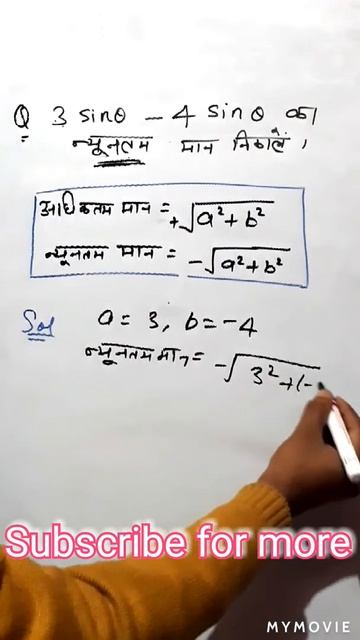 Q 3 sinθ - 4 sinθ का
न्यूनतम मान निकालें ।
अधिकतम मान = +√a²+b²
न्यूनतम मान = -√a²+b²
Sol a = 3, b = -4
न्यूनतम मान = -√3²+(-
Subscribe for more
MYMOVIE